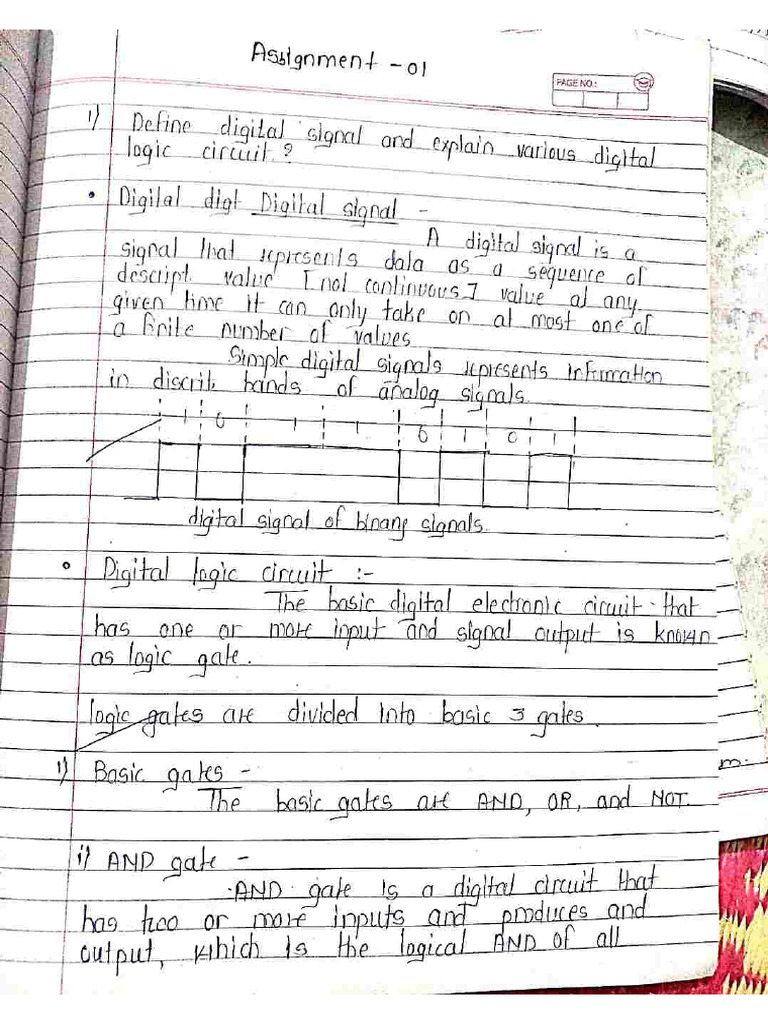 Assignment - 01
PAGE NO.:
1) Define digital signal and explain various digital
logic circuit?
• Digital digt Digital signal -
A digital signal is a
signal that represents data as a sequence of
descript value [not continuous] value at any
given time it can only take on at most one of
a finite number of values
Simple digital signals represents information
in discrit bands of analog signals.
1 0 1 1 0 1 0 1
digital signal of binary signals.
• Digital logic circuit :-
The basic digital electronic circuit that
has one or more input and signal output is known
as logic gate.
logic gates are divided into basic 3 gates.
1) Basic gates -
The basic gates are AND, OR, and NOT.
m.
i) AND gate -
AND gate is a digital circuit that
has two or more inputs and produces and
output, which is the logical AND of all